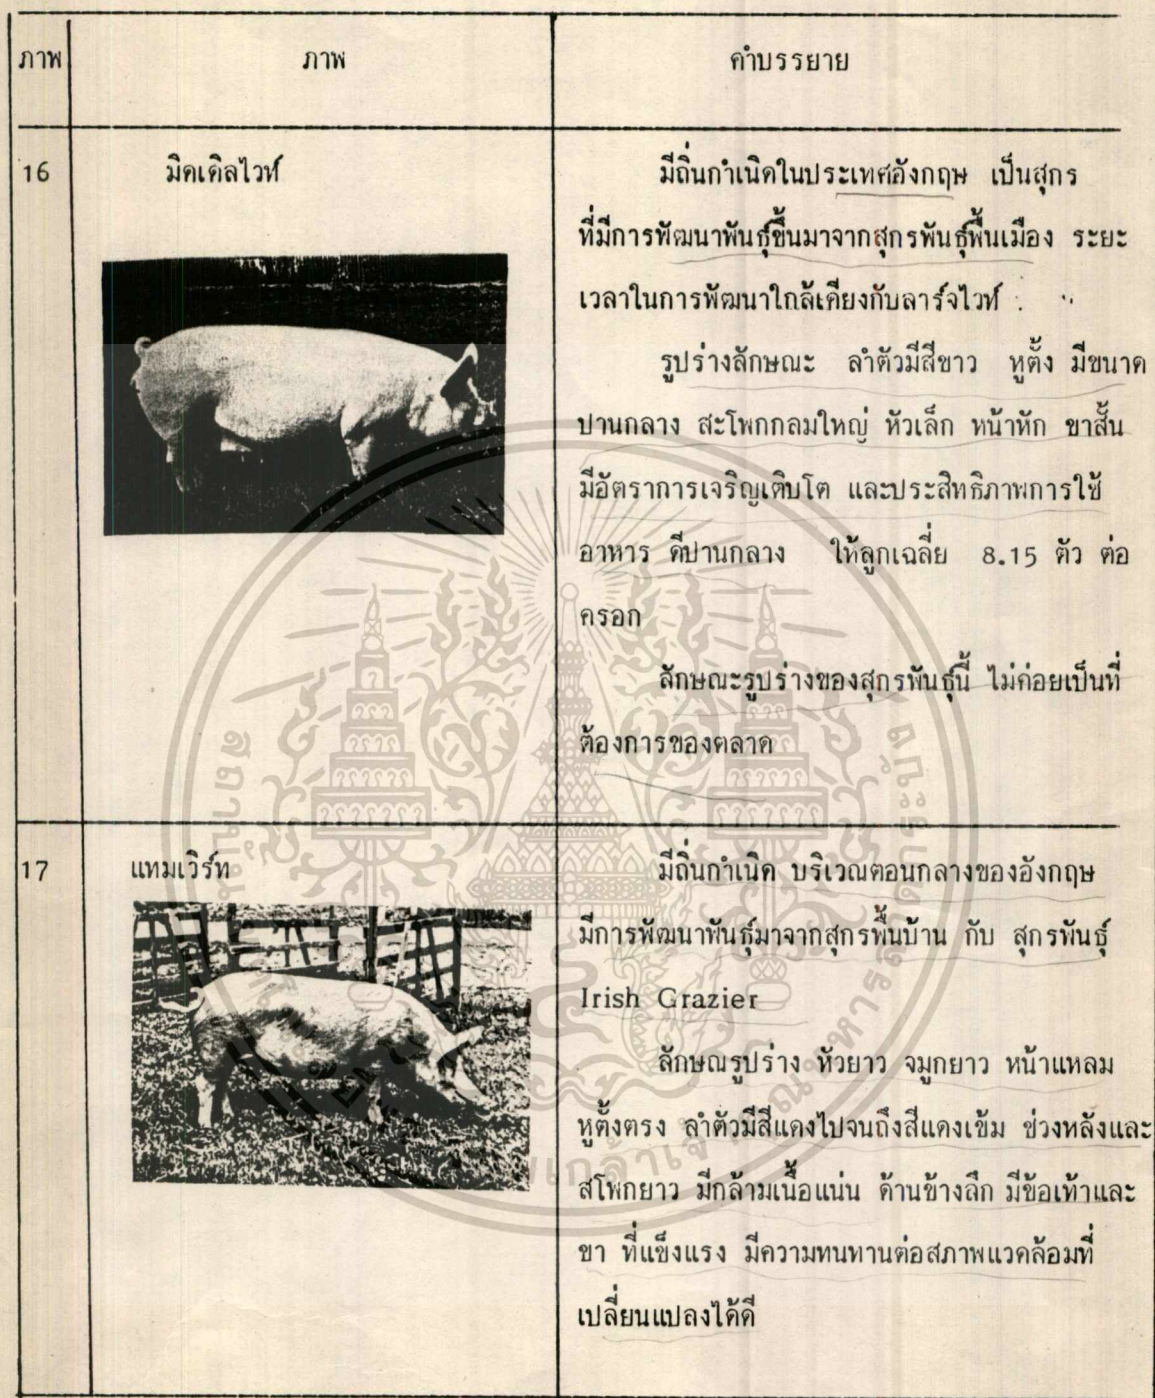 ภาพ ภาพ คำบรรยาย
16 มิดเดิลไวท์ มีถิ่นกำเนิดในประเทศอังกฤษ เป็นสุกร
ที่มีการพัฒนาพันธุ์ขึ้นมาจากสุกรพันธุ์พื้นเมือง ระยะ
เวลาในการพัฒนาใกล้เคียงกับลาร์จไวท์
รูปร่างลักษณะ ลำตัวมีสีขาว หูตั้ง มีขนาด
ปานกลาง สะโพกกลมใหญ่ หัวเล็ก หน้าหัก ขาสั้น
มีอัตราการเจริญเติบโต และประสิทธิภาพการใช้
อาหาร ดีปานกลาง ให้ลูกเฉลี่ย 8.15 ตัว ต่อ
ครอก
ลักษณะรูปร่างของสุกรพันธุ์นี้ ไม่ค่อยเป็นที่
ต้องการของตลาด
17 แทมเวิร์ท มีถิ่นกำเนิด บริเวณตอนกลางของอังกฤษ
มีการพัฒนาพันธุ์มาจากสุกรพื้นบ้าน กับ สุกรพันธุ์
Irish Grazier
ลักษณรูปร่าง หัวยาว จมูกยาว หน้าแหลม
หูตั้งตรง ลำตัวมีสีแดงไปจนถึงสีแดงเข้ม ช่วงหลังและ
สโพกยาว มีกล้ามเนื้อแน่น ด้านข้างลึก มีข้อเท้าและ
ขา ที่แข็งแรง มีความทนทานต่อสภาพแวดล้อมที่
เปลี่ยนแปลงได้ดี